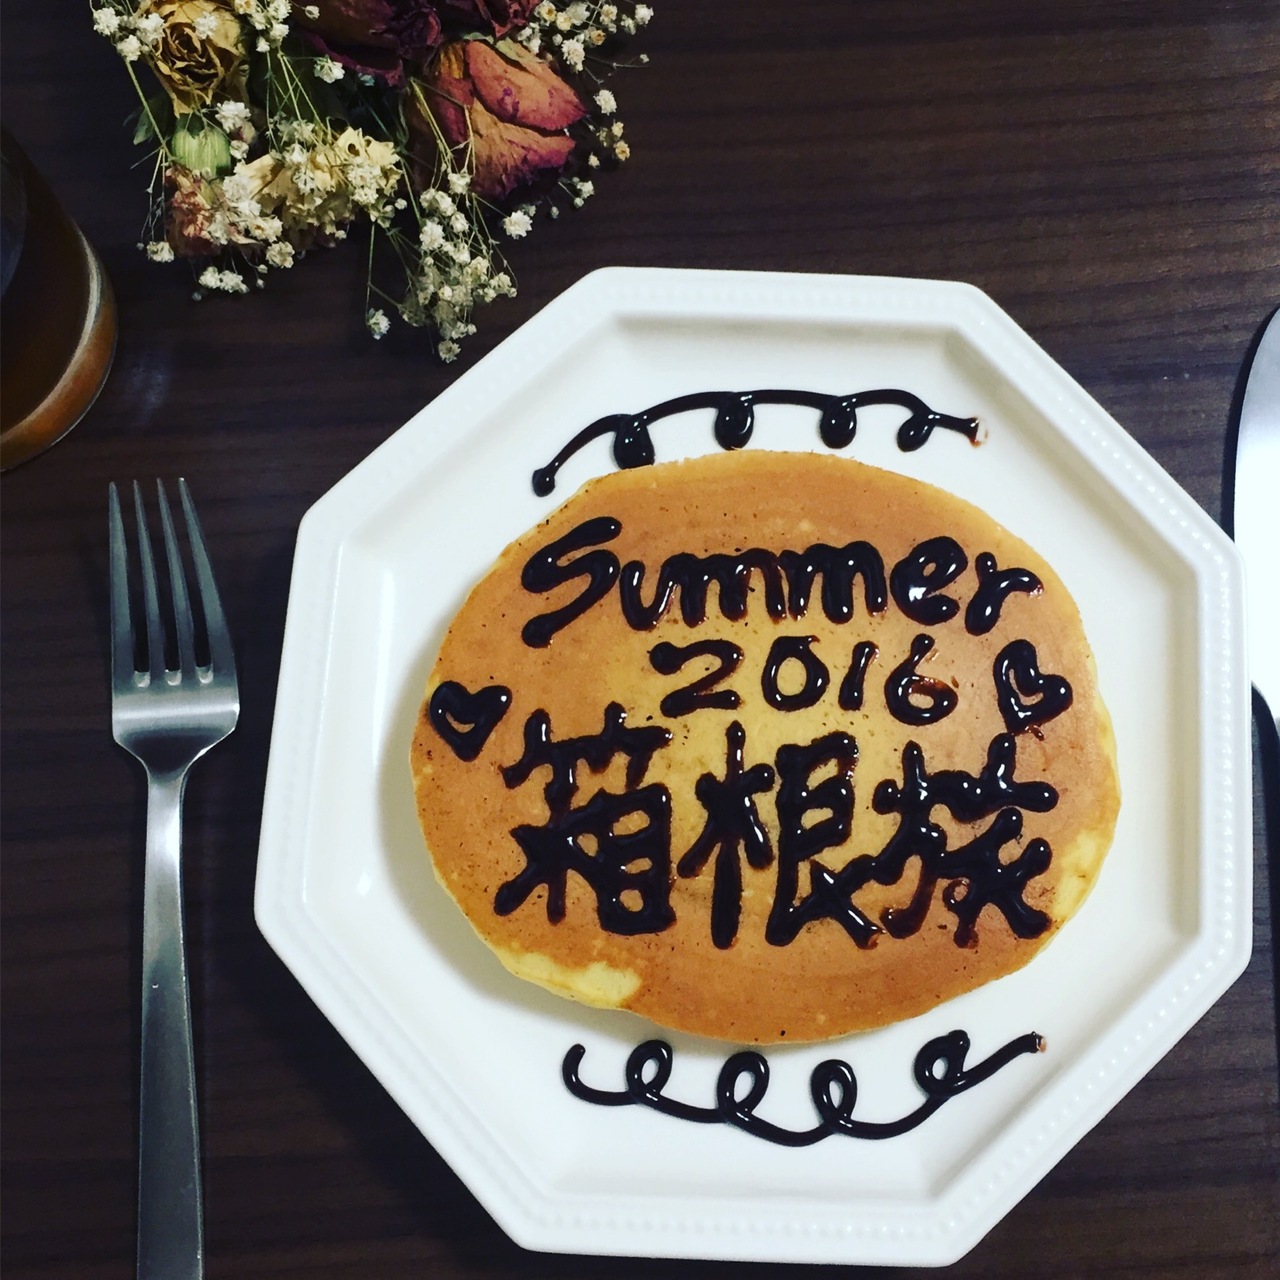 Summer
2016
箱根旅